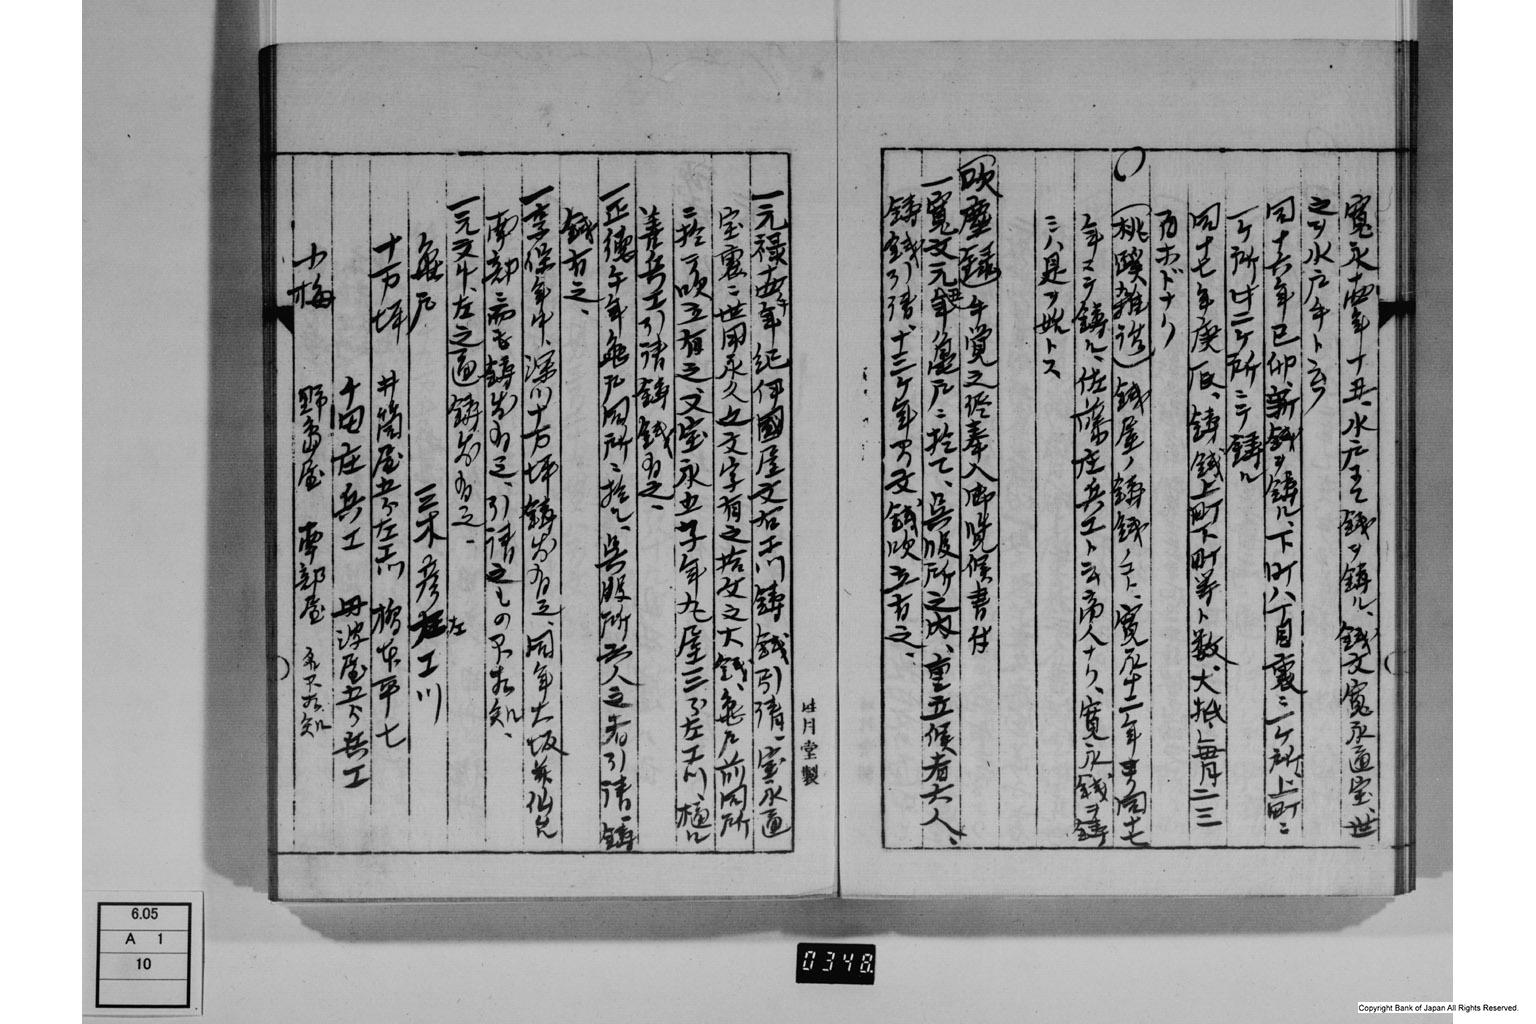 寛永十四年丁丑、水戸ニテ銭ヲ鋳ル、銭文寛永通宝、世
之ヲ水戸銭ト云フ
同十六年己卯、新銭ヲ鋳ル、下町八丁目裏ニ一ケ所、上町ニ
一ケ所、廿二ケ所ニテ鋳ル
同十七年庚辰、鋳銭上町下町等ト数、大抵毎月二三
百ホドナリ
(桃蹊雑話)銭屋ノ鋳銭ノコト、寛永十二年ヨリ同十七
年マテ鋳ル、佐藤庄兵エト云商人ナリ、寛永銭ヲ鋳
ミハ是ヲ始トス
吹塵録 覚之控奉入御覧候書付
一寛文元年亀戸ニ於て、呉服所之内、重立候者六人、
鋳銭引請、十三ケ年ヨ文銭吹立有之、
一元禄十四年、紀伊國屋文右エ門鋳銭引請、宝永通
宝裏ニ世用永久之文字有之拾文之大銭、亀戸前同所
ニ於て吹立有之、又宝永五子年九屋三郎左エ門、
善兵エ引請鋳銭有之、
一正徳午年亀戸同所ニ於て、呉服所六人之者引請鋳
銭有之、
一享保年中、深川十万坪鋳銭有之、同年大坂并仙台
南部ニ而も鋳銭有之、引請之もの不相知、
一元文中、左之通鋳銭有之、
亀戸 三木彦左エ門
十万坪 井筒屋五郎左エ門 橋本平七
千田庄兵エ 丹波屋五郎兵エ
小梅 野島屋 南部屋 名不相知
松月堂製
6.05
A 1
10
0348.
Copyright Bank of Japan All Rights Reserved.